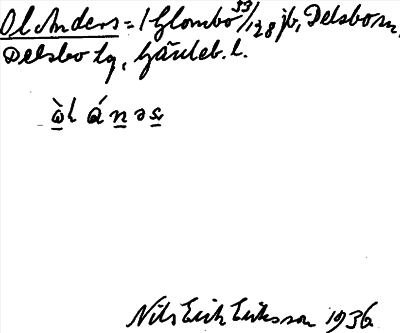 Ol Anders = 1 Glombo 33/128 jb, Delsbo sn,
Delsbo tg, Gävleb. l.
ò̲l á n̲ ə s̲
Nils Erik Eriksson 1936